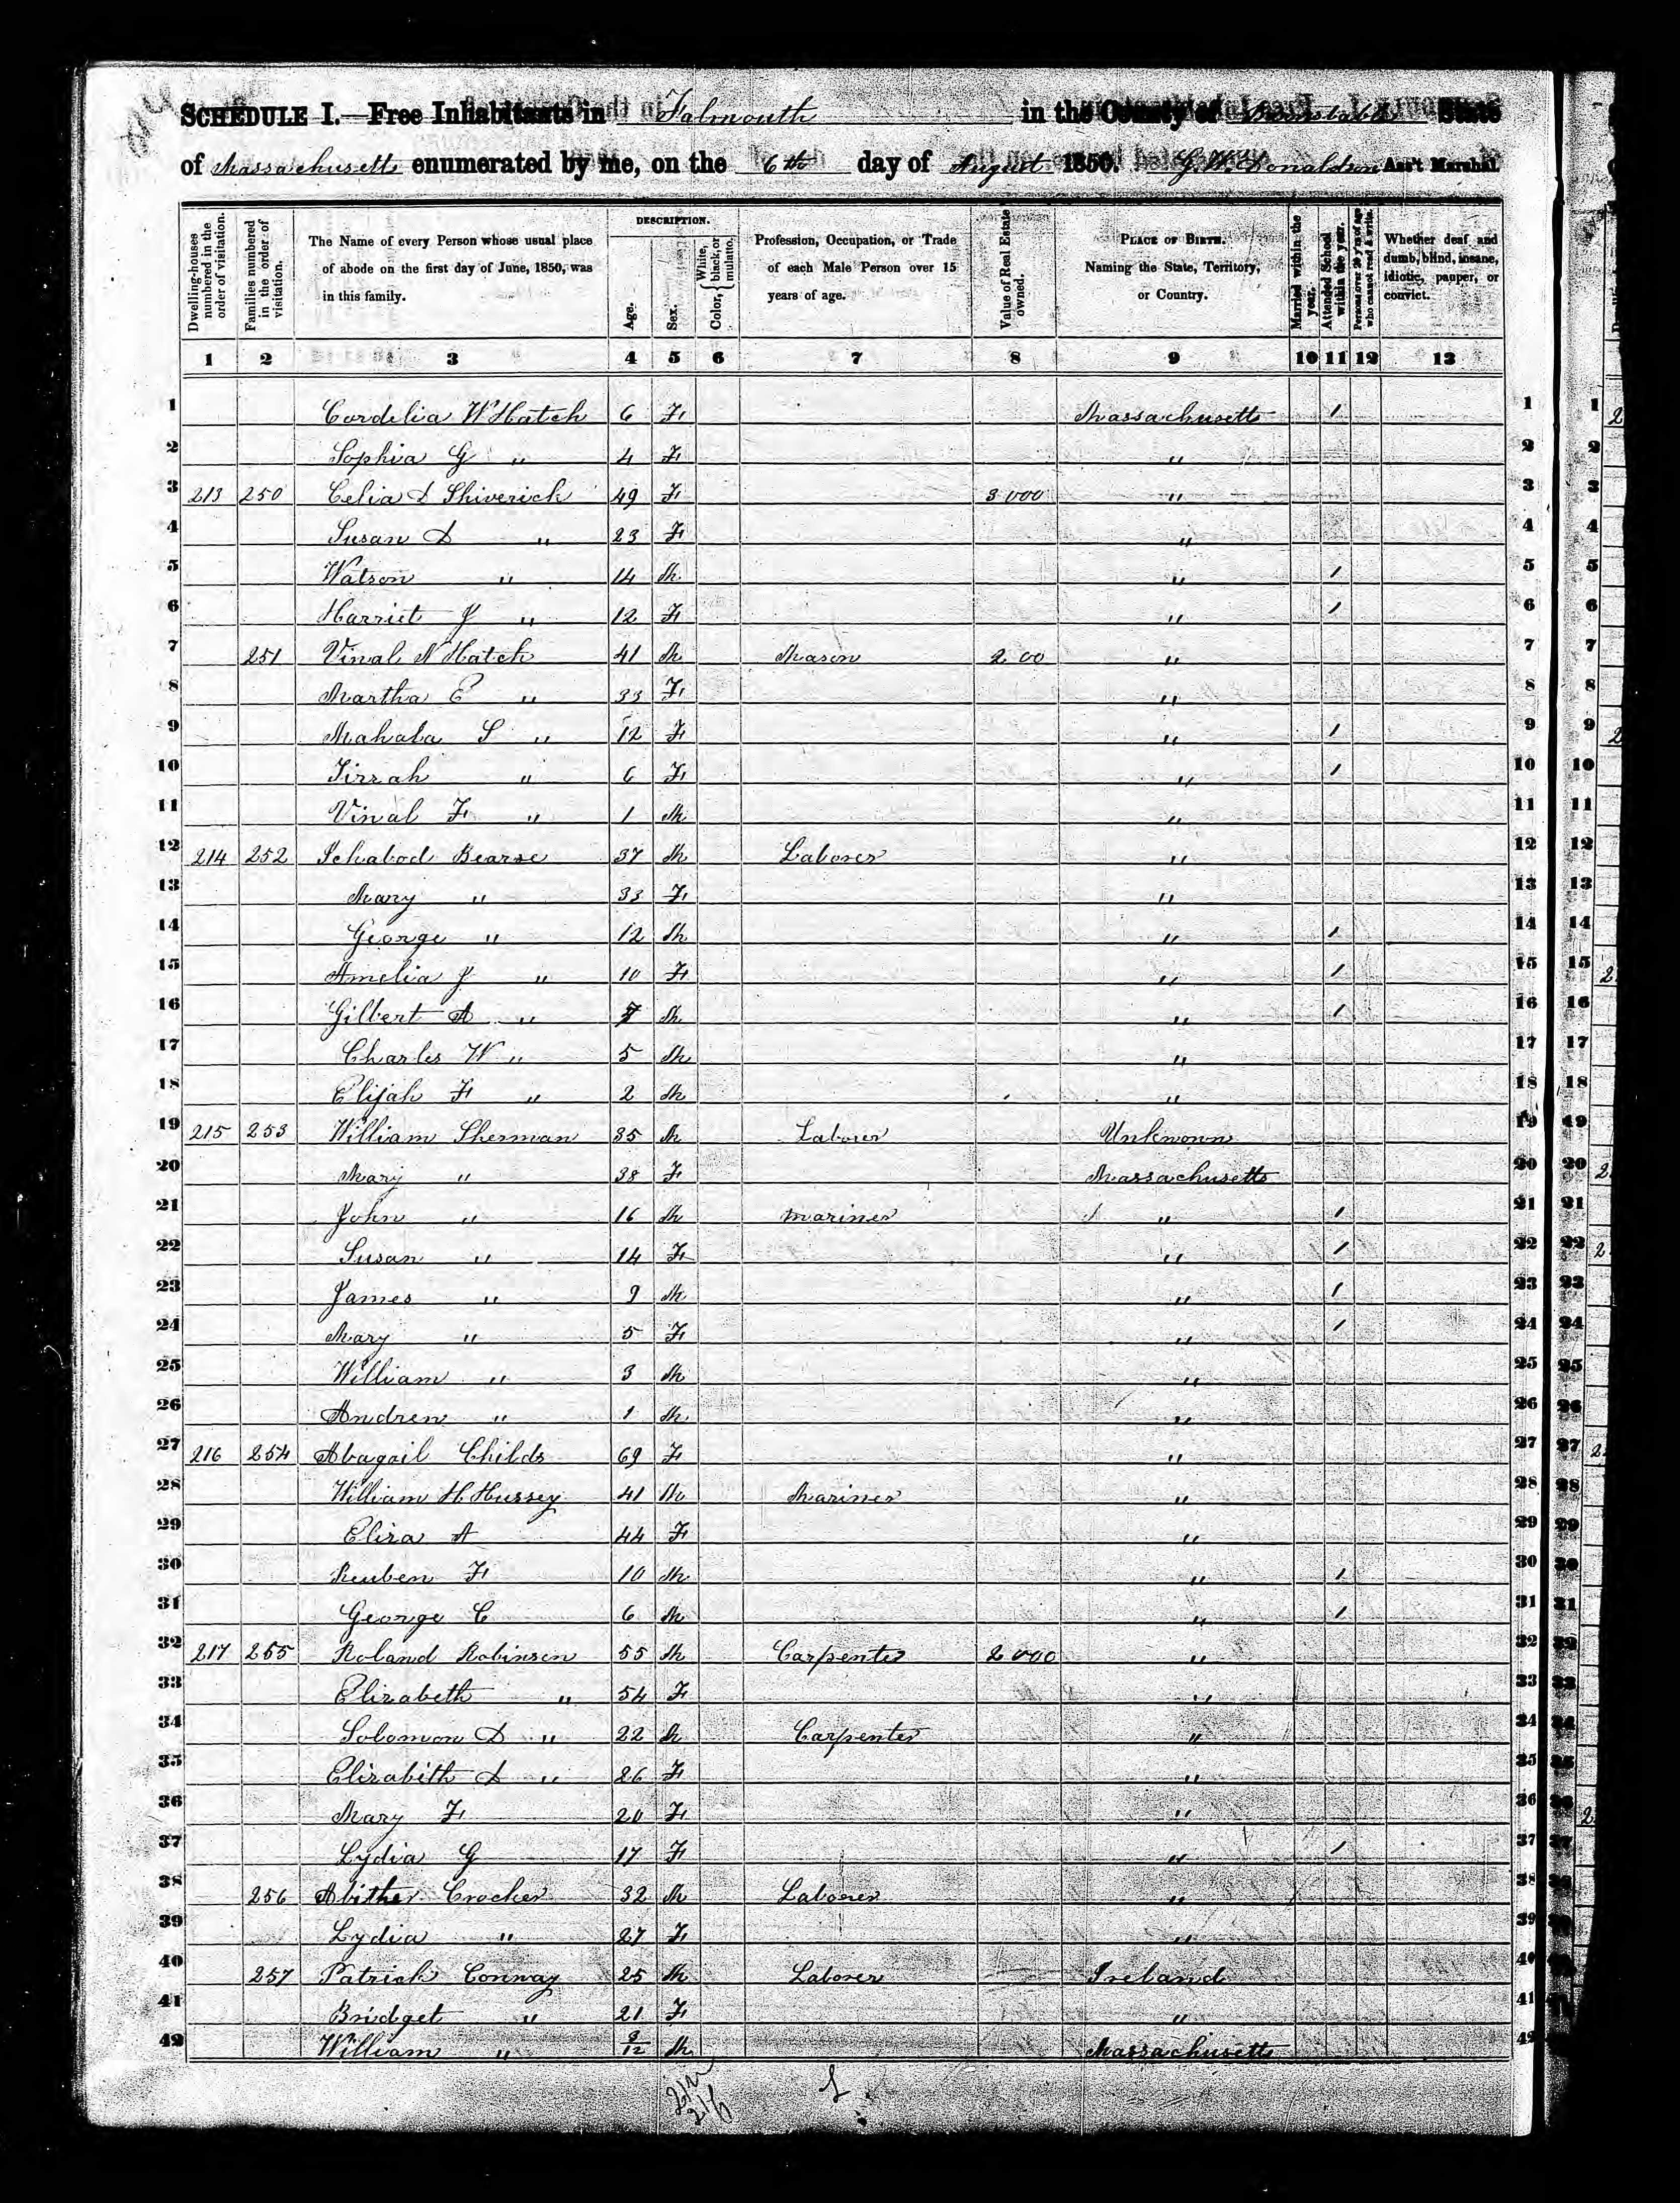 SCHEDULE I.—Free Inhabitants in Falmouth in the County of Barnstable State
of Massachusetts enumerated by me, on the 6th day of August 1850. G. W. Donaldson Ass't Marshal.
Dwelling-houses numbered in the order of visitation. Families numbered in the order of visitation. The Name of every Person whose usual place of abode on the first day of June, 1850, was in this family. DESCRIPTION. Age. Sex. Color, { White, black, or mulatto. Profession, Occupation, or Trade of each Male Person over 15 years of age. Value of Real Estate owned. PLACE OF BIRTH. Naming the State, Territory, or Country. Married within the year. Attended School within the year. Persons over 20 y'rs of age who cannot read & write. Whether deaf and dumb, blind, insane, idiotic, pauper, or convict.
1 2 3 4 5 6 7 8 9 10 11 12 13
1 Cordelia W Hatch 6 F Massachusetts 1 1
2 Sophia G " 4 F " 2
3 213 250 Celia D Shiverick 49 F 3000 " 3
4 Susan D " 23 F " 4
5 Watson " 14 M " 1 5
6 Harriet J " 12 F " 1 6
7 251 Vinal N Hatch 41 M Mason 200 " 7
8 Martha E " 33 F " 8
9 Mahala S " 12 F " 1 9
10 Tirzah " 6 F " 1 10
11 Vinal F " 1 M " 11
12 214 252 Ichabod Bearse 37 M Laborer " 12
13 Mary " 33 F " 13
14 George " 12 M " 1 14
15 Amelia J " 10 F " 1 15
16 Gilbert A " 7 M " 1 16
17 Charles W " 5 M " 17
18 Elijah F " 2 M " 18
19 215 253 William Sherman 35 M Laborer Unknown 19
20 Mary " 38 F Massachusetts 20
21 John " 16 M Mariner " 1 21
22 Susan " 14 F " 1 22
23 James " 9 M " 1 23
24 Mary " 5 F " 1 24
25 William " 3 M " 25
26 Andrew " 1 M " 26
27 216 254 Abagail Childs 69 F " 27
28 William H Hussey 41 M Mariner " 28
29 Eliza A 44 F " 29
30 Reuben F 10 M " 1 30
31 George C 6 M " 1 31
32 217 255 Roland Robinson 55 M Carpenter 2000 " 32
33 Elizabeth " 54 F " 33
34 Solomon D " 22 M Carpenter " 34
35 Elizabeth D " 26 F " 35
36 Mary F 20 F " 36
37 Lydia G 17 F " 1 37
38 256 Abither Crocker 32 M Laborer " 38
39 Lydia " 27 F " 39
40 257 Patrick Conway 25 M Laborer Ireland 40
41 Bridget " 21 F " 41
42 William " M Massachusetts 42